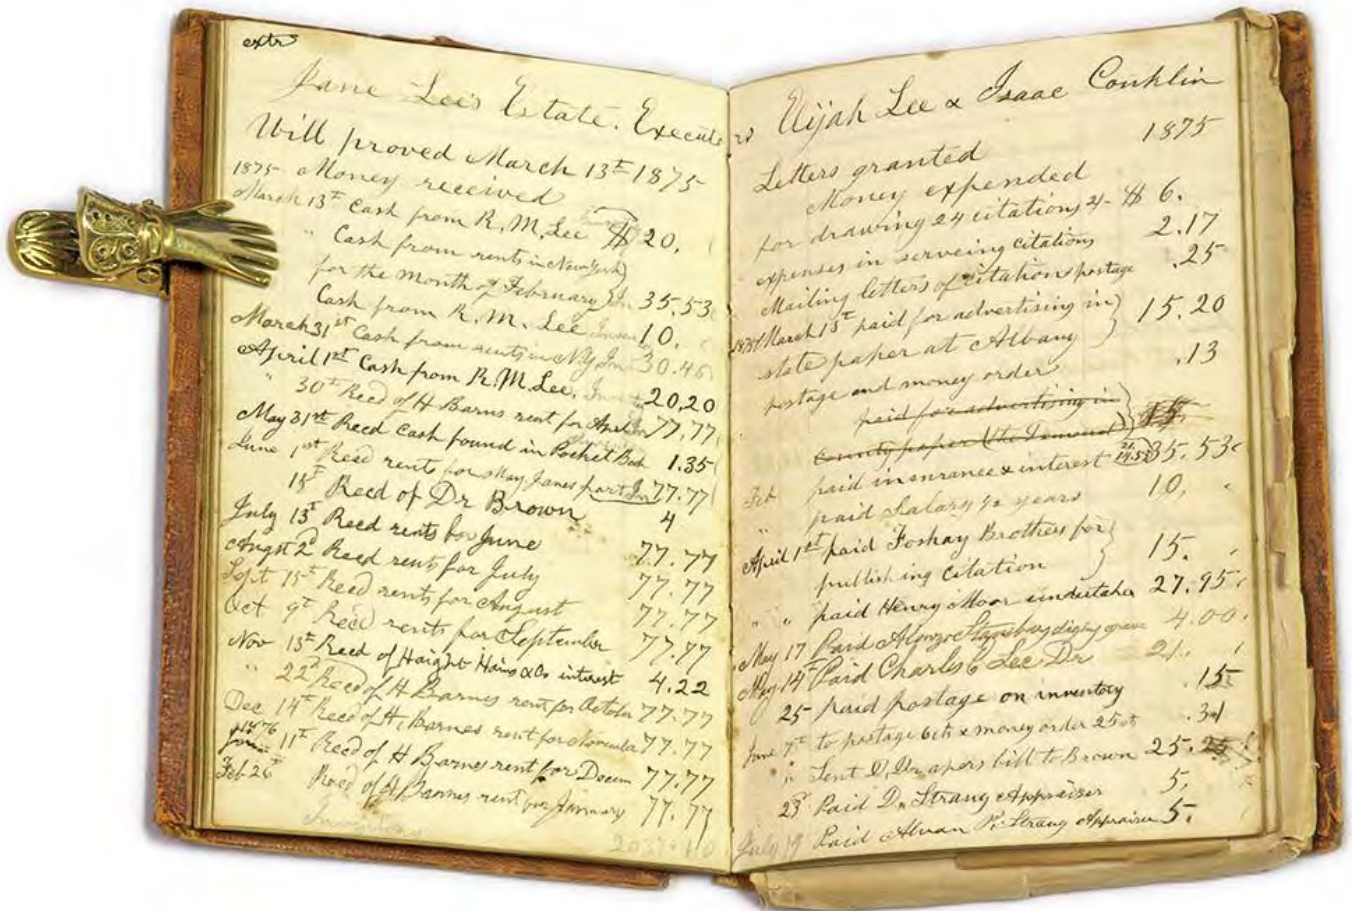 extr
Jane Lee's Estate. Execute
Will proved March 13th 1875
1875 Money received
March 13th Cash from R. M. Lee $20.
" Cash from rents in New York
for the month of February In 35.53
Cash from R. M. Lee 10.
March 31st Cash from rents in N.Y. In 30.46
April 1st Cash from R. M. Lee. 20,20
" 30th Recd of H Barns rent for April In 77.77
May 31st Recd Cash found in Pocket Book 1.35
June 1st Recd rents for May Janes part In 77.77
15th Recd of Dr Brown 4
July 13th Recd rents for June 77.77
Augst 2d Recd rent for July 77.77
Sept 15th Recd rents for August 77.77
Oct 9th Recd rents for September 77.77
Nov 13th Recd of Haight Hains & Co interest 4.22
" 22d Recd of H Barnes rent for October 77.77
Dec 14th Recd of H. Barnes rent for November 77.77
1876 11th Recd of H Barnes rent for Decem 77.77
Feb 26th Recd of H Barnes rent for January 77.77
Inventory
rs Elijah Lee & Isaac Conklin
Letters granted 1875
Money expended
for drawing 24 citations 2/- $6.
expenses in serveing citations 2.17
Mailing letters of citations postage .25
1875 March 13th paid for advertising in
state paper at Albany 15.20
postage and money order .13
paid for advertising in
County paper (the Democrat) 15
Feb paid insurance & interest 35.53
" paid Salary ½ years 10,
April 1st paid Foshay Brothers for
publishing Citation 15.
" " paid Henry Moor undertaker 27.95
May 17 Paid Alonzo Stansbury diging grave 4.00
May 14th Paid Charles C Lee Dr 21.
25 paid postage on inventory .15
June 7th to postage 6cts & money order 25cts .31
" Sent D, Drapers bill to Brown 25.
23d Paid D. Strang Appraiser 5,
July 19 Paid Alvan P. Strang Appraiser 5.